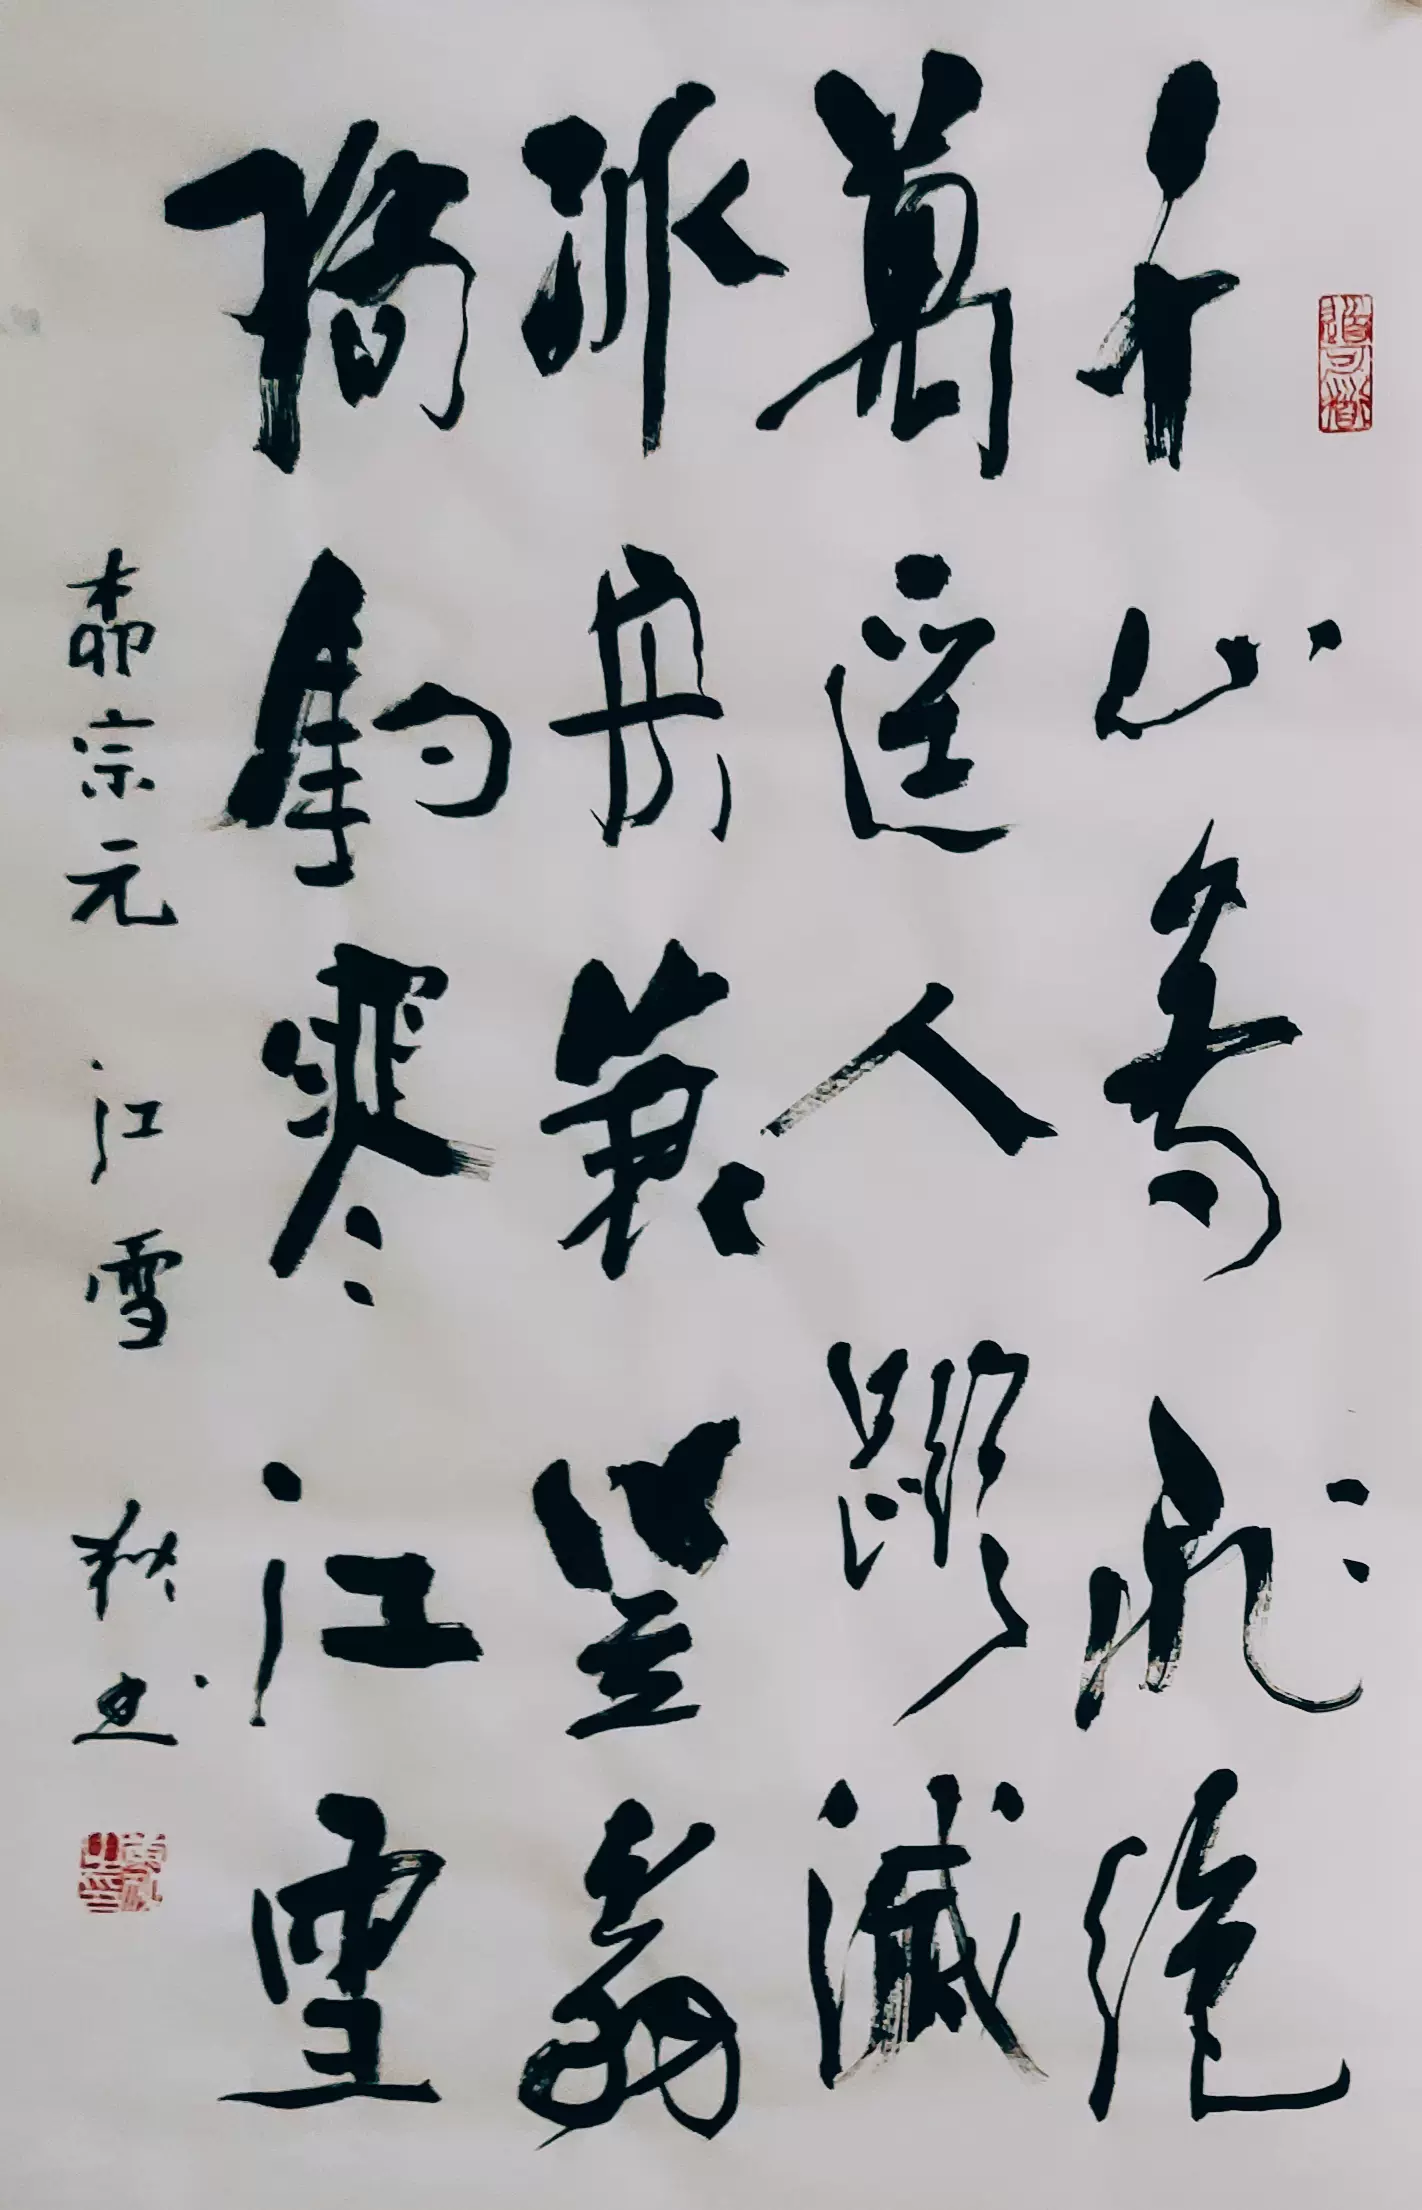 千山鳥飛絕
萬逕人蹤滅
孤舟蓑笠翁
獨釣寒江雪
柳宗元 江雪 秋书